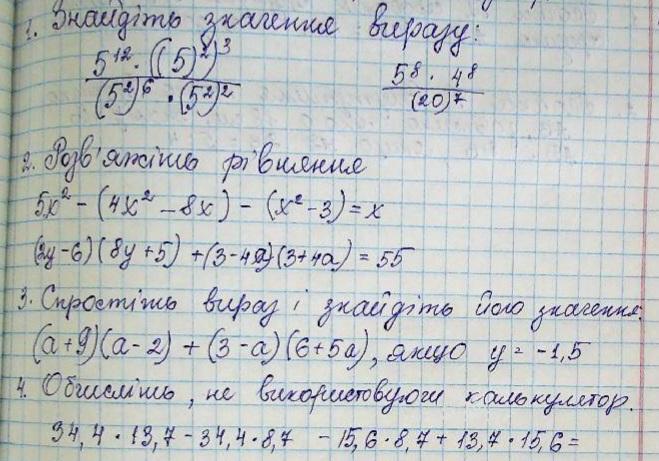 1. Знайдіть значення виразу:
5¹²·((5)²)³ / (5²)⁶·(5²)² 5⁸·4⁸ / (20)⁷
2. Розв'яжіть рівняння
5x² - (4x² - 8x) - (x² - 3) = x
(2y - 6)(8y + 5) + (3 - 4a)(3 + 4a) = 55
3. Спростіть вираз і знайдіть його значення:
(a + 9)(a - 2) + (3 - a)(6 + 5a), якщо y = -1,5
4. Обчисліть, не використовуючи калькулятор.
34,4·13,7 - 34,4·8,7 - 15,6·8,7 + 13,7·15,6 =